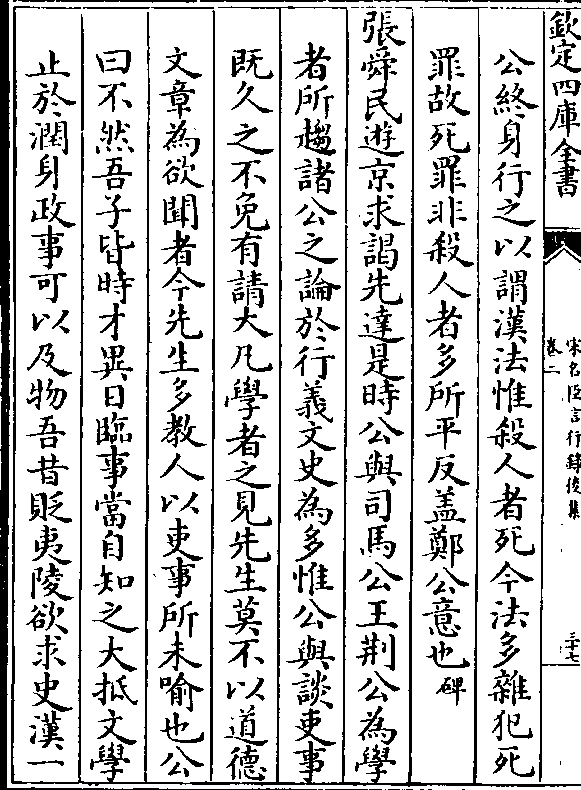 欽定四庫全書
宋名臣言行錄後集
卷二
三十七
公終身行之以謂漢法惟殺人者死今法多雜犯死
罪故死罪非殺人者多所平反蓋鄭公意也碑
張舜民遊京求謁先達是時公與司馬公王荆公為學
者所趨諸公之論於行義文史為多惟公與談吏事
既久之不免有請大凡學者之見先生莫不以道德
文章為欲聞者今先生多教人以吏事所未喻也公
曰不然吾子皆時才異日臨事當自知之大抵文學
止於潤身政事可以及物吾昔貶夷陵欲求史漢一